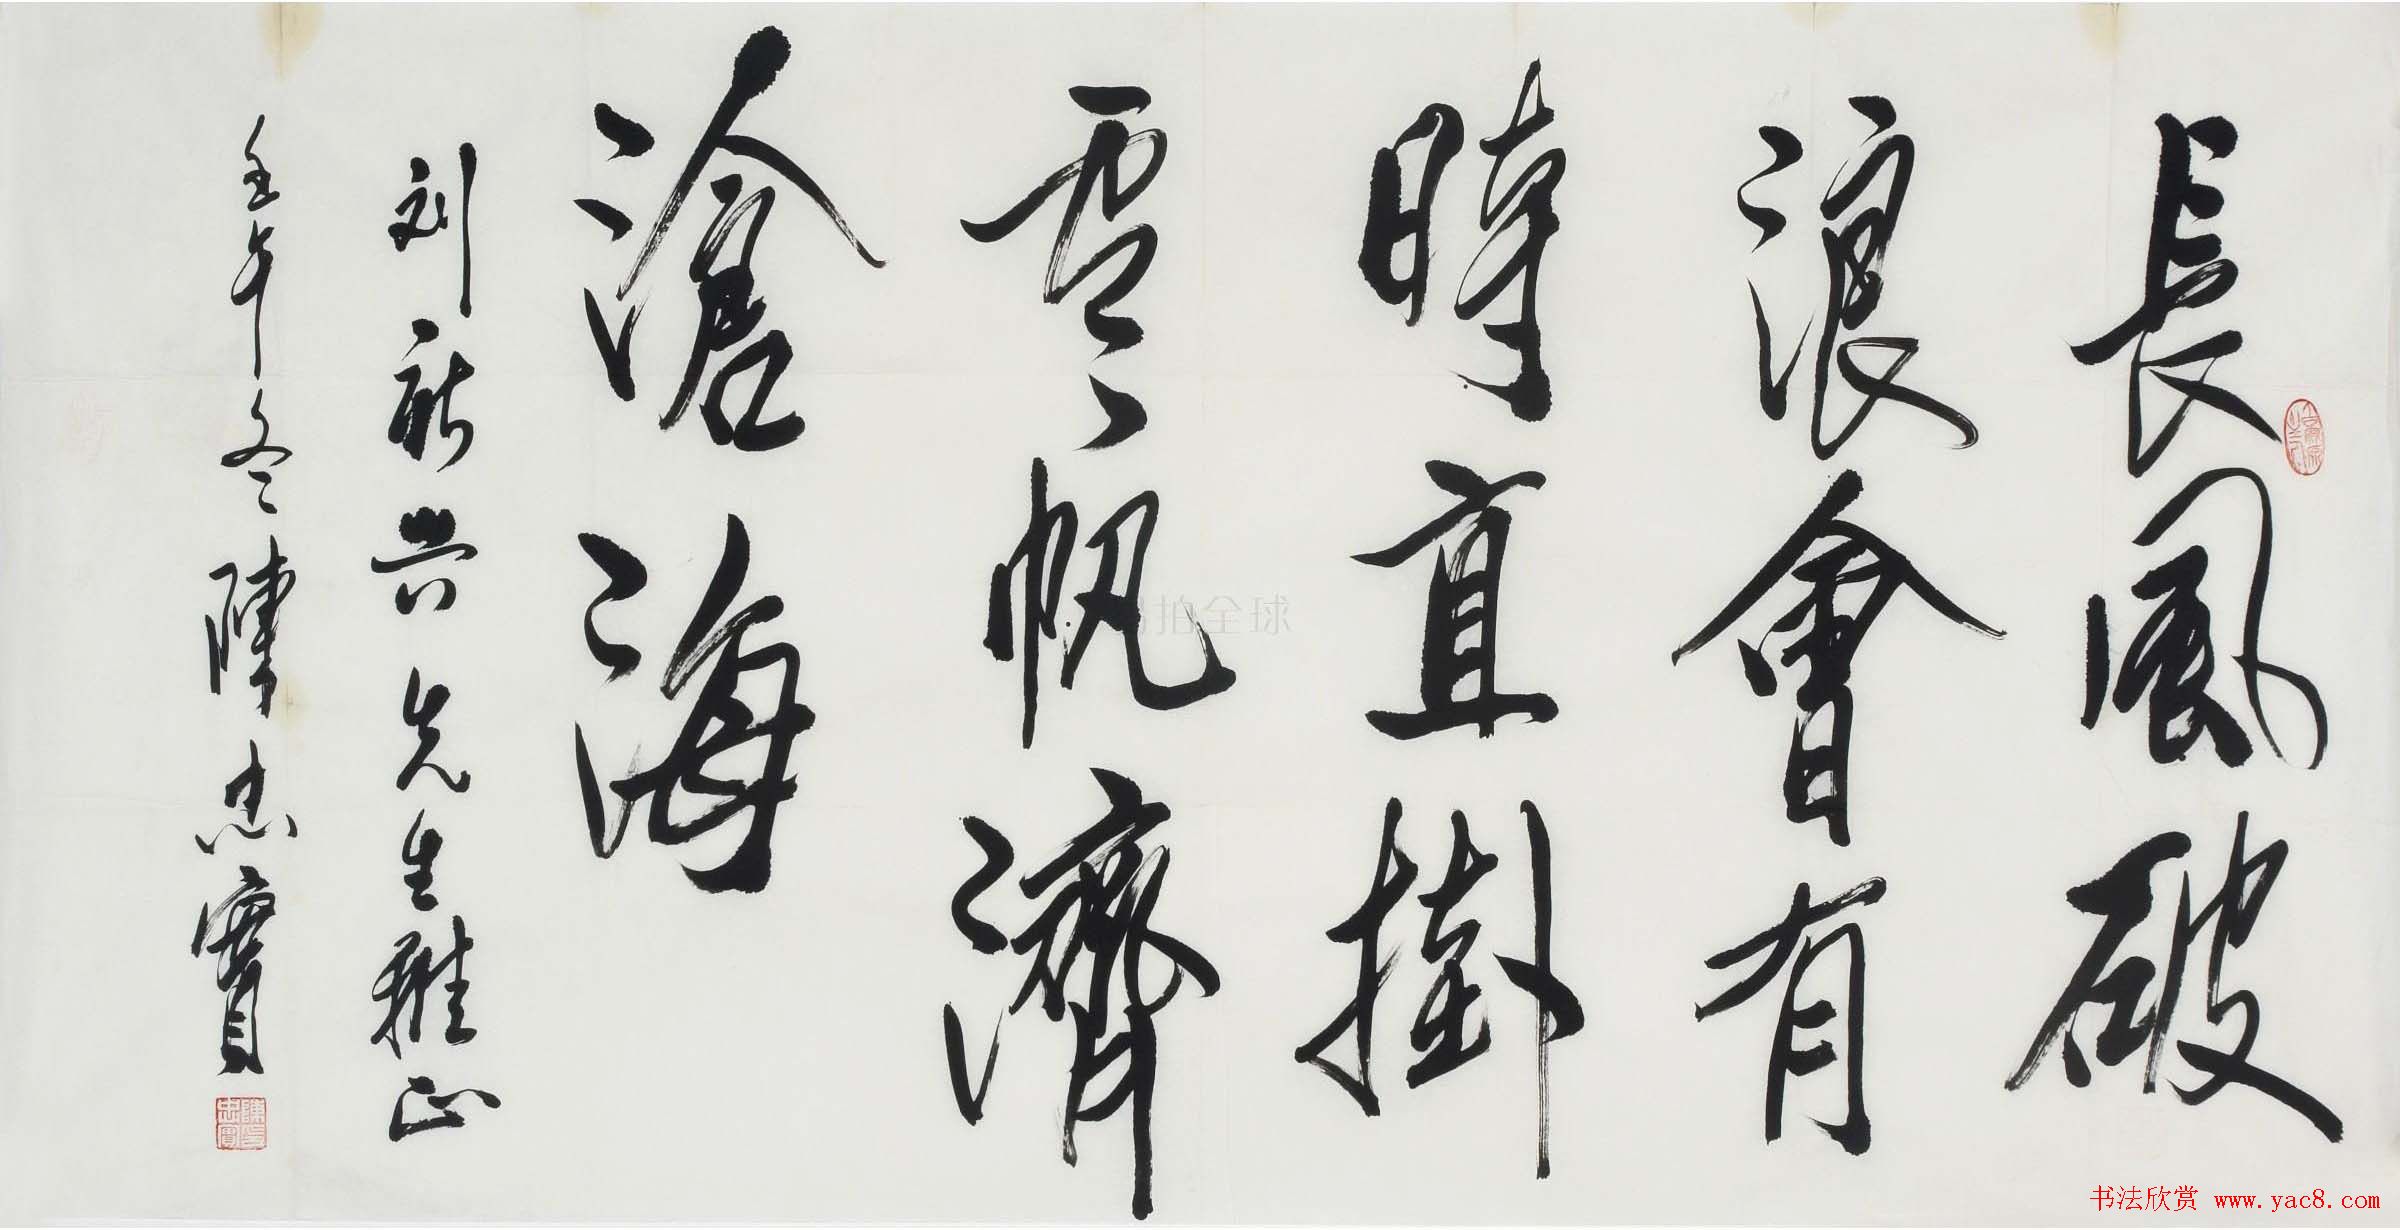 長風破
浪會有
時直掛
雲帆濟
滄海
刘新芳先生雅正
壬午冬 陳忠實
拍全球
书法欣赏 www.yac8.com